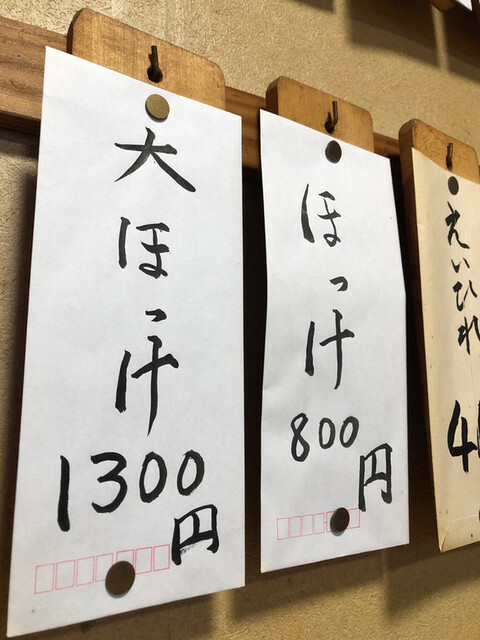 大ほっけ
1300円
ほっけ
800円
えいひれ